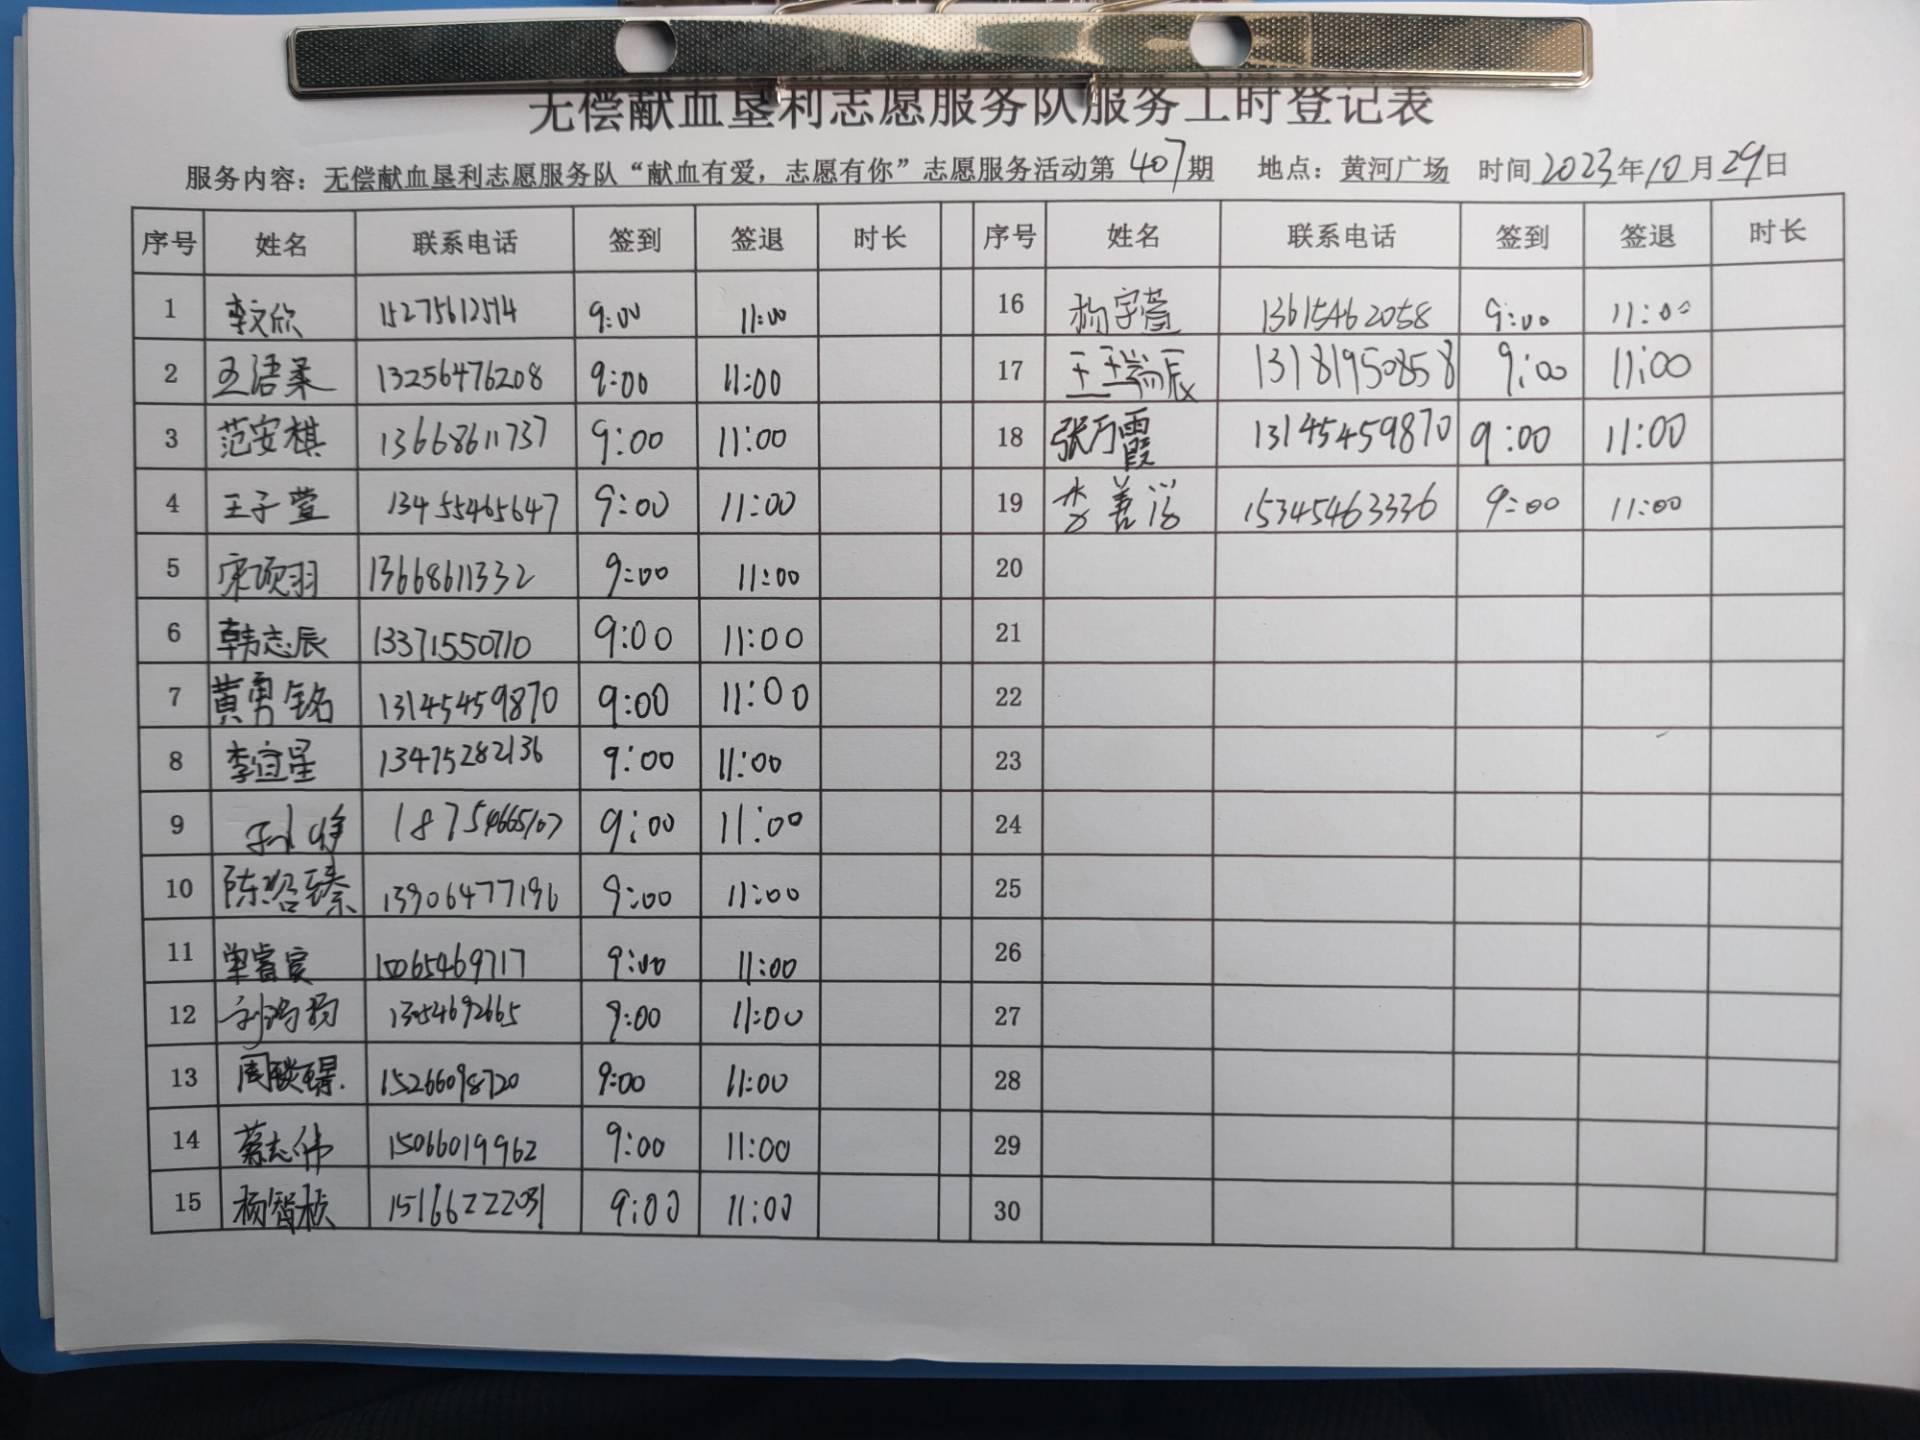 无偿献血垦利志愿服务队服务工时登记表
服务内容：无偿献血垦利志愿服务队“献血有爱，志愿有你”志愿服务活动第407期 地点：黄河广场 时间2023年10月29日
序号 姓名 联系电话 签到 签退 时长 序号 姓名 联系电话 签到 签退 时长
1 李文欣 15275612574 9:00 11:00 16 杨宇萱 13615462058 9:00 11:00
2 王语柔 13256476208 9:00 11:00 17 王瑞辰 13181950858 9:00 11:00
3 范安棋 13668611737 9:00 11:00 18 张万霞 13145459870 9:00 11:00
4 王子萱 13455465647 9:00 11:00 19 李善 15345463336 9:00 11:00
5 宋项羽 13668611332 9:00 11:00 20
6 韩志辰 13371550710 9:00 11:00 21
7 黄勇铭 13145459870 9:00 11:00 22
8 李宜星 13475282136 9:00 11:00 23
9 孙峥 18754665107 9:00 11:00 24
10 陈招臻 13906477196 9:00 11:00 25
11 单睿宸 15065469717 9:00 11:00 26
12 刘鸿扬 9:00 11:00 27
13 周琰璟 15266098720 9:00 11:00 28
14 蔡志伟 15066019962 9:00 11:00 29
15 杨智桢 15166222031 9:00 11:00 30